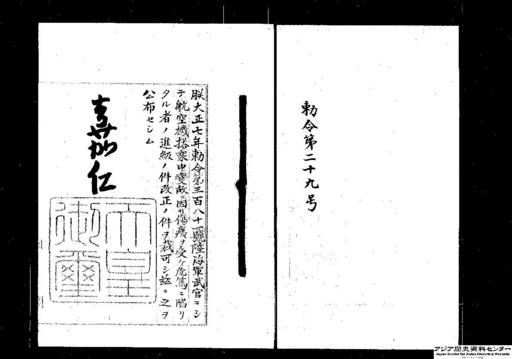 勅令第二十九号
朕大正七年勅令第三百八十一号陸海軍武官ニシ
テ航空機搭乗中変故ニ因リ傷痍ヲ受ケ危篤ニ陥リ
タル者ノ進級ノ件改正ノ件ヲ裁可シ茲ニ之ヲ
公布セシム
嘉仁
天皇
御璽
アジア歴史資料センター
Japan Center for Asian Historical Records